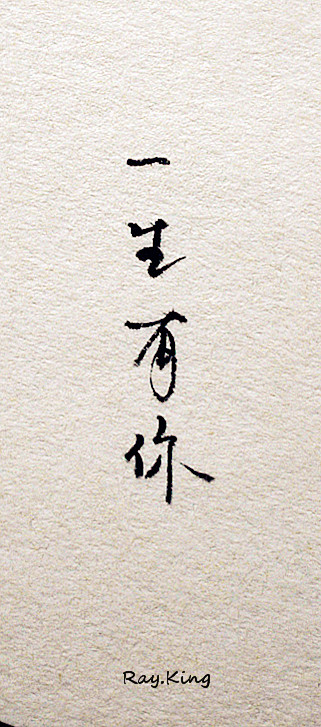 一生有你
Ray.King